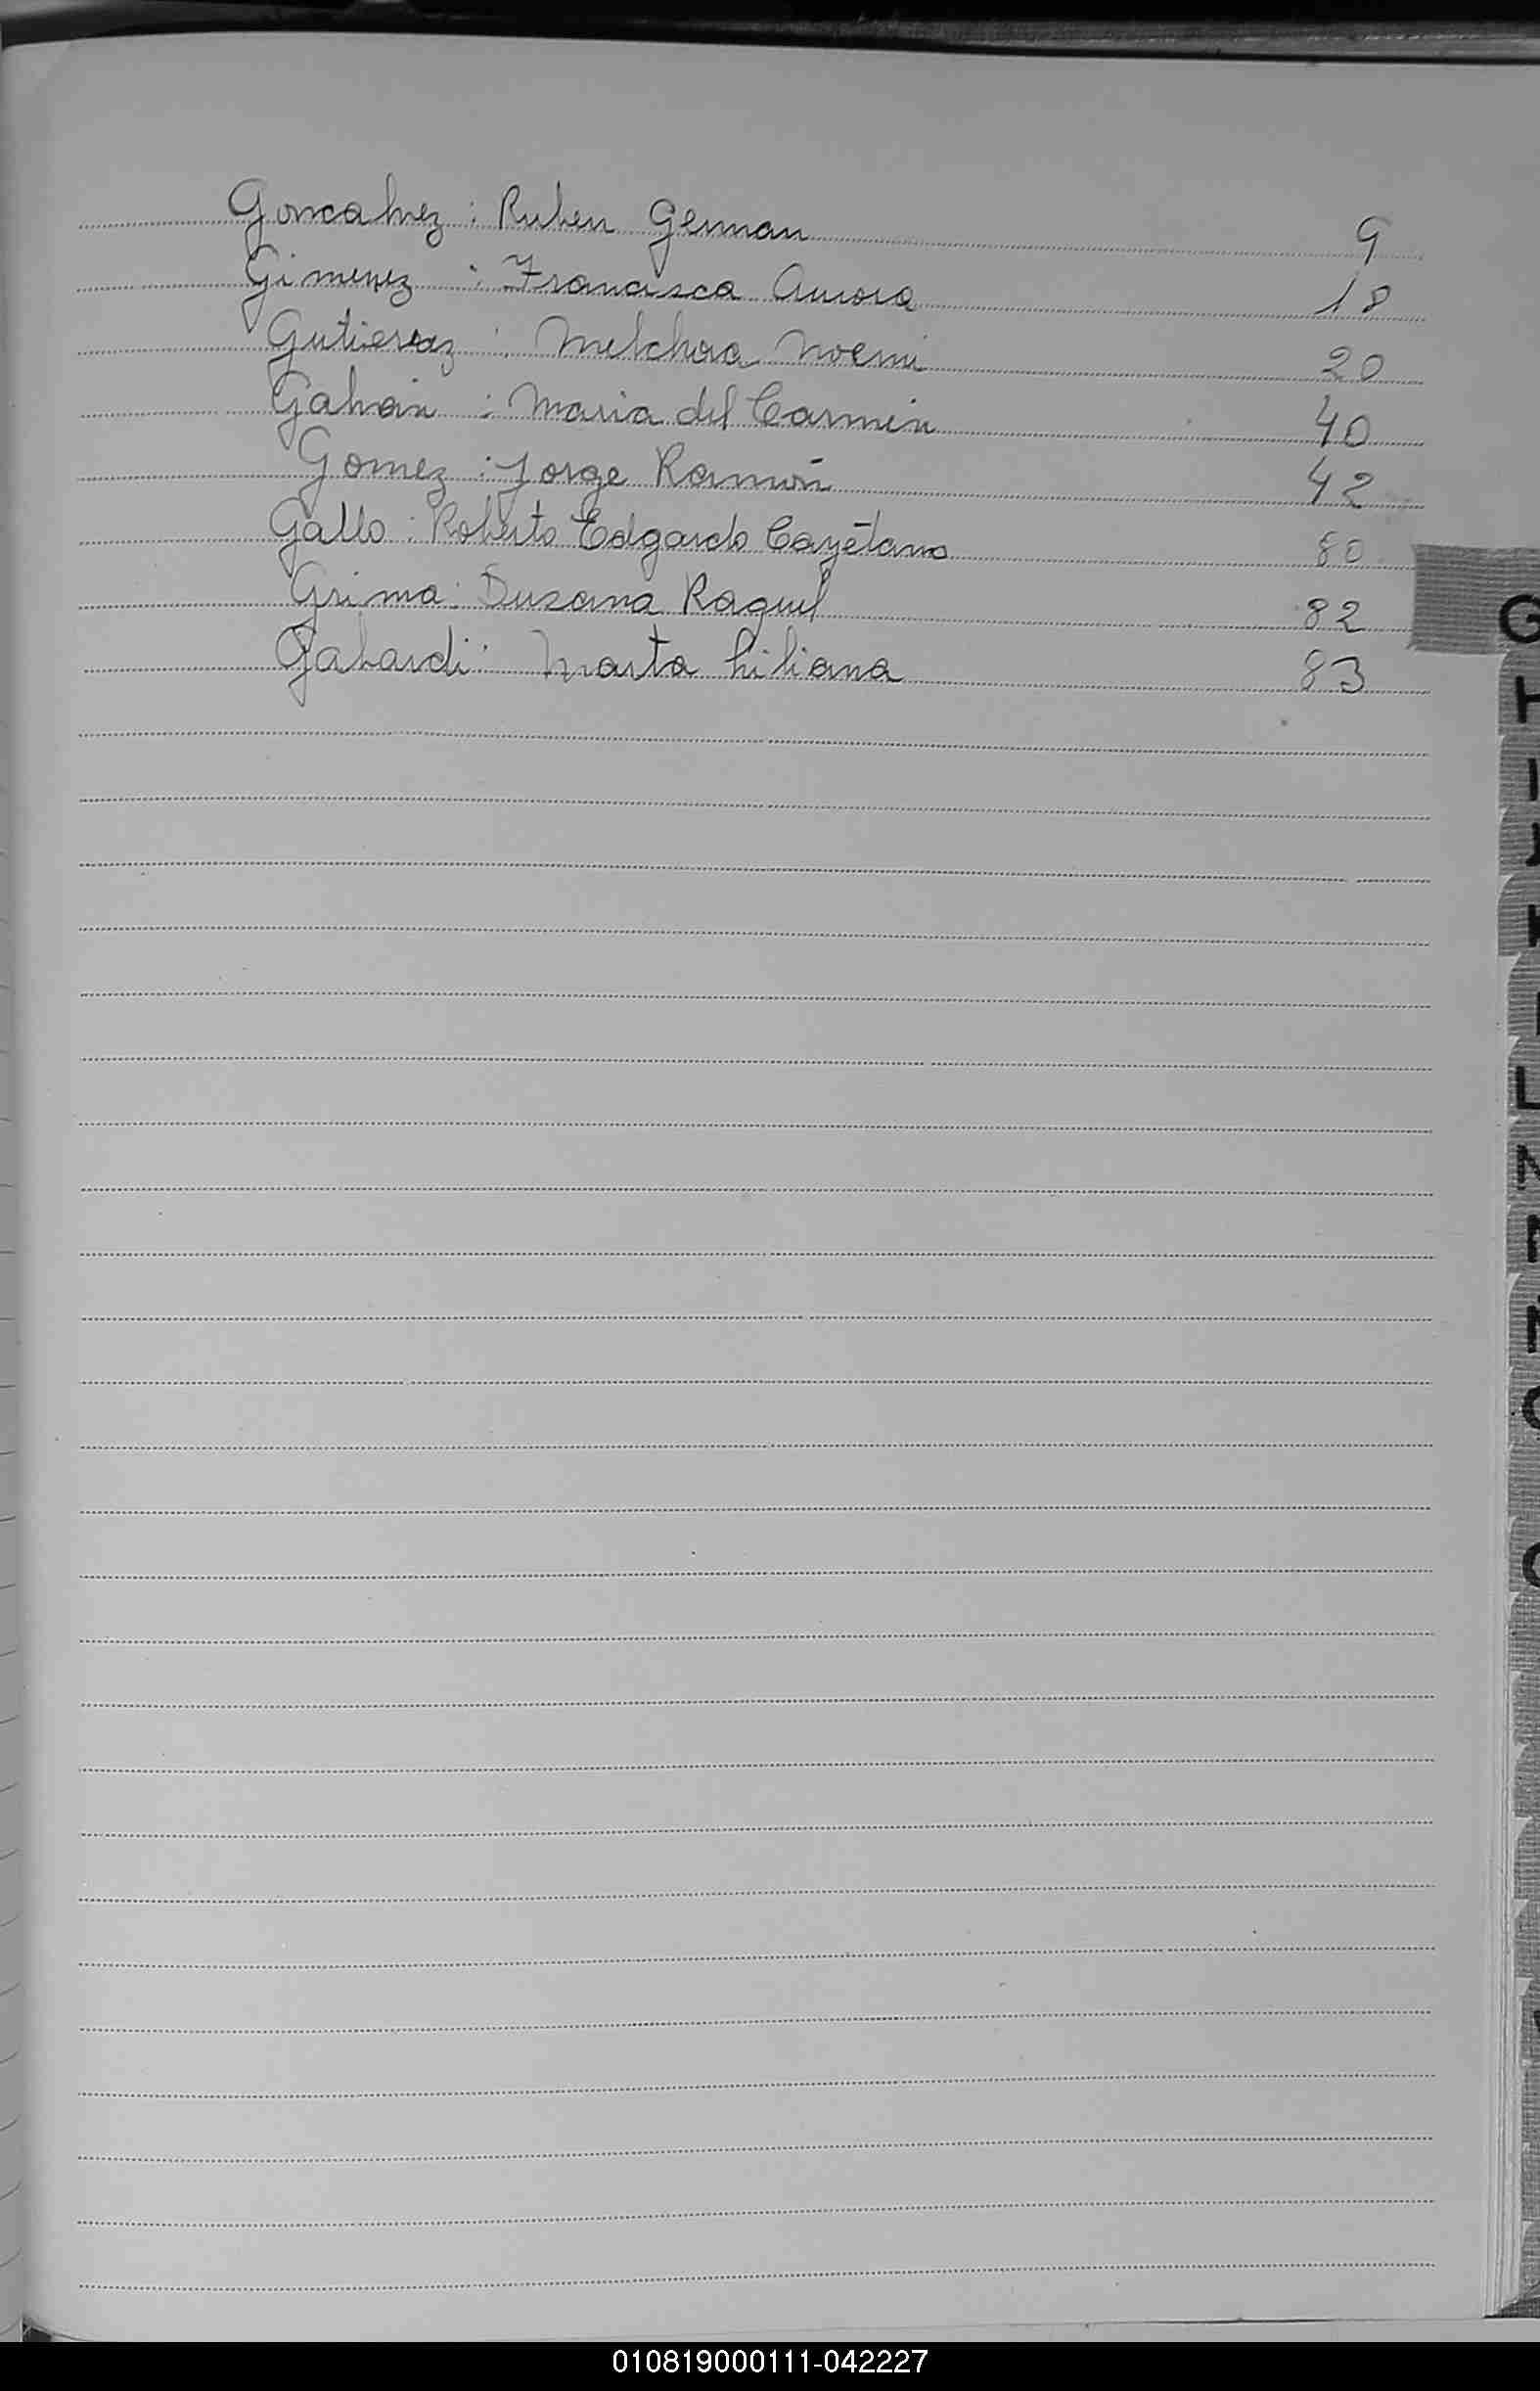 Goncalvez : Ruben German 9
Gimenez : Francisca Aurora 18
Gutierrez : Melchora Noemi 20
Galván : Maria del Carmen 40
Gomez : Jorge Ramón 42
Gallo : Roberto Edgardo Cayetano 80
Grima : Susana Raquel 82
Galardi : Marta Liliana 83
G
H
I
J
K
L
N
O
010819000111-042227